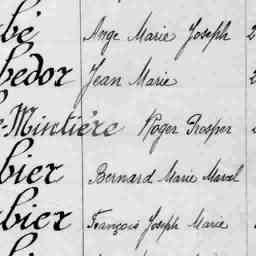 bé Ange Marie Joseph 2
bedor Jean Marie
-Mintière Roger Prosper
bier Bernard Marie Marcel
bier François Joseph Marie